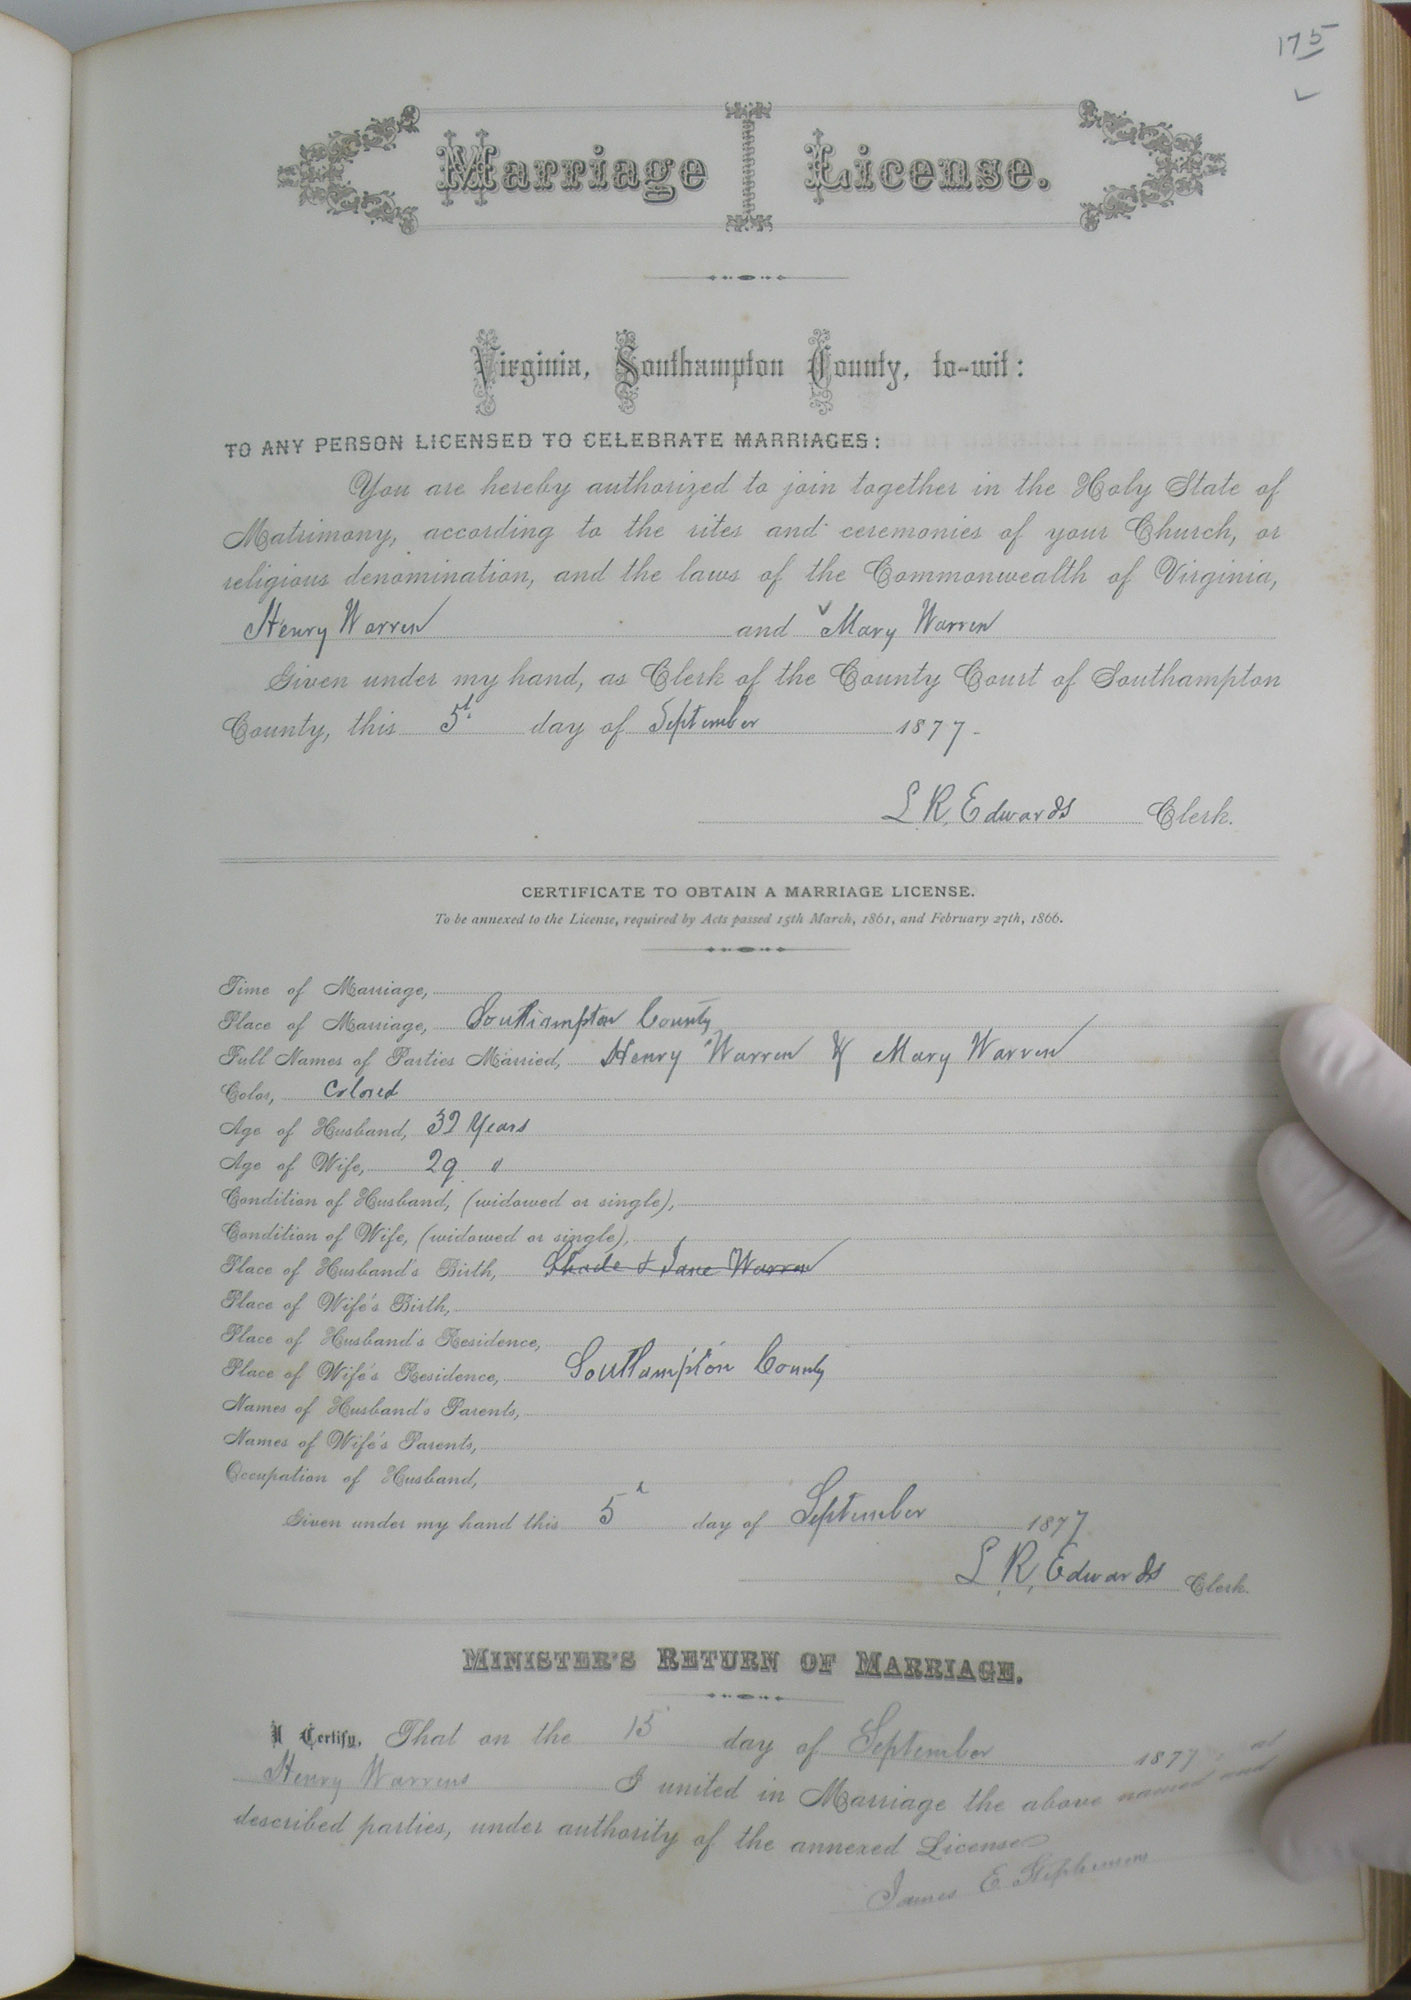 175
Marriage License.
Virginia, Southampton County, to-wit:
TO ANY PERSON LICENSED TO CELEBRATE MARRIAGES:
You are hereby authorized to join together in the Holy State of
Matrimony, according to the rites and ceremonies of your Church, or
religious denomination, and the laws of the Commonwealth of Virginia,
Henry Warren and Mary Warren
Given under my hand, as Clerk of the County Court of Southampton
County, this 5th day of September 1877.
L. R. Edwards Clerk.
CERTIFICATE TO OBTAIN A MARRIAGE LICENSE.
To be annexed to the License, required by Acts passed 15th March, 1861, and February 27th, 1866.
Time of Marriage,
Place of Marriage, Southampton County
Full Names of Parties Married, Henry Warren & Mary Warren
Color, Colored
Age of Husband, 32 Years
Age of Wife, 29 "
Condition of Husband, (widowed or single),
Condition of Wife, (widowed or single),
Place of Husband's Birth, Shade & Jane Warren
Place of Wife's Birth,
Place of Husband's Residence,
Place of Wife's Residence, Southampton County
Names of Husband's Parents,
Names of Wife's Parents,
Occupation of Husband,
Given under my hand this 5 day of September 1877
L. R. Edwards Clerk.
MINISTER'S RETURN OF MARRIAGE.
I Certify, That on the 15 day of September 1877, at
Henry Warrens I united in Marriage the above named and
described parties, under authority of the annexed License
James E Stephenson